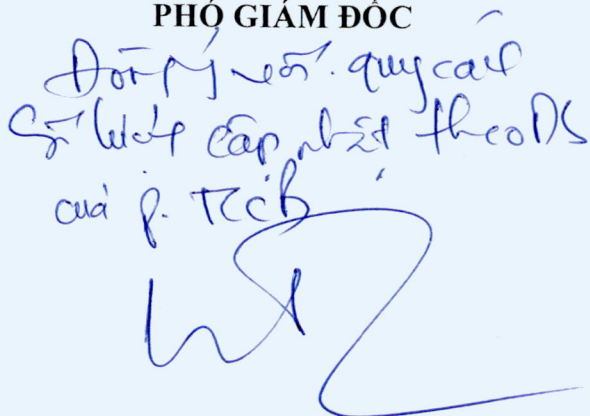 PHÓ GIÁM ĐỐC
Đồng ý với. quy cách
Số lượng cập nhật theo DS
của p. TCCB